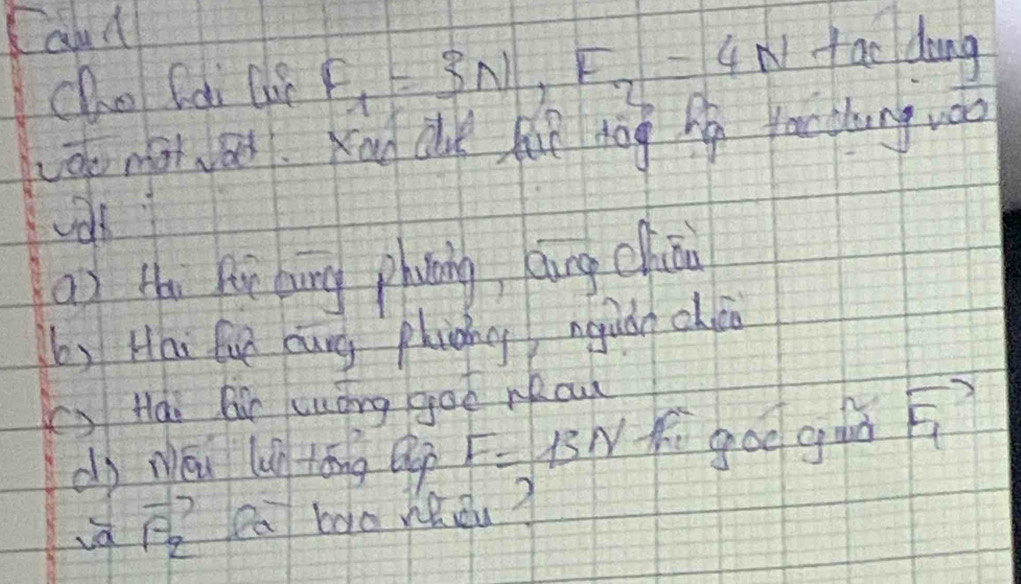 Câu 1
Cho hai lực F₁ = 3N, F₂ = 4N tác dụng
vào một vật. Xác định lực tổng hợp tác dụng vào
vật:
a) Hai lực cùng phương, cùng chiều
b) Hai lực cùng phương, ngược chiều
c) Hai lực vuông góc nhau
d) Nếu lực tổng hợp F = 13N thì góc giữa F₁⃗
và F₂⃗ là bao nhiêu?